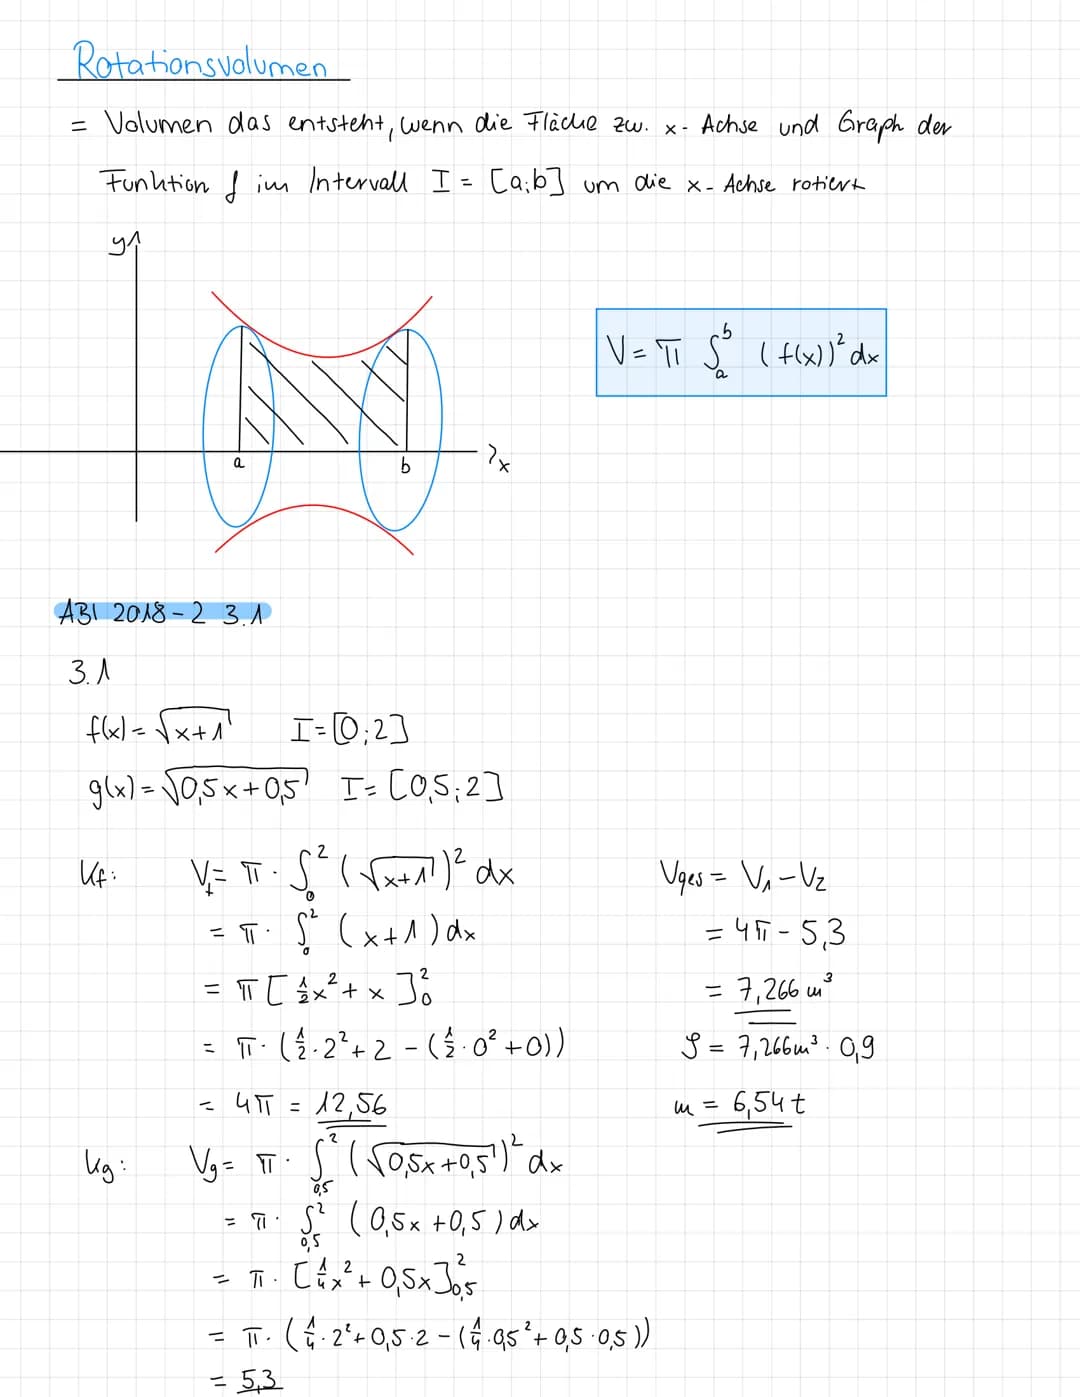 Rotationsvolumen
= Volumen das entsteht, wenn die Fläche zw. x-Achse und Graph der
Funktion f im Intervall I = [a;b] um die x-Achse rotiert
y
a
b
x
V = π ∫ₐᵇ (f(x))² dx
ABI 2018-2 3.1
3.1
f(x) = √(x+1) I=[0;2]
g(x) = √(0,5x+0,5) I=[0,5;2]
Kf: V_f = π · ∫₀² (√(x+1))² dx
= π · ∫₀² (x+1) dx
= π [½x² + x]₀²
= π · (½·2² + 2 - (½·0² + 0))
= 4π = 12,56
Kg: Vg = π · ∫_0,5^2 (√(0,5x+0,5))² dx
= π · ∫_0,5^2 (0,5x + 0,5) dx
= π · [¼x² + 0,5x]_0,5^2
= π · (¼·2² + 0,5·2 - (¼·0,5² + 0,5·0,5))
= 5,3
Vges = V₁ - V₂
= 4π - 5,3
= 7,266 m³
ρ = 7,266m³ · 0,9
m = 6,54 t